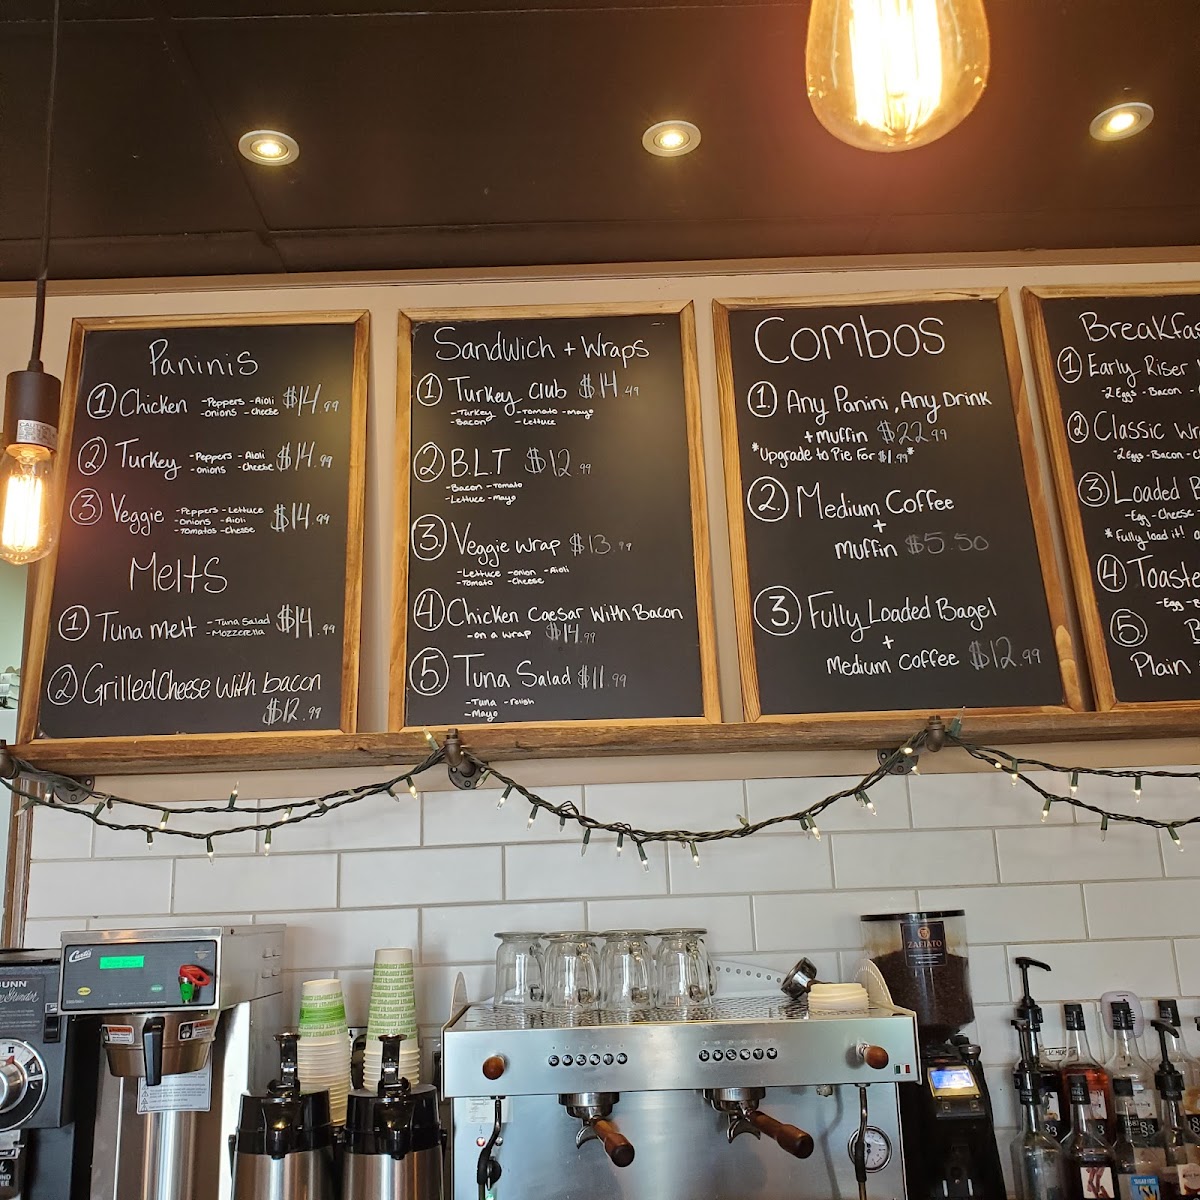 Paninis
① Chicken -Peppers -Aioli $14.99
-onions -cheese
② Turkey -Peppers -Aioli $14.99
-onions -cheese
③ Veggie -Peppers -Lettuce $14.99
-onions -Aioli
-Tomatos -Chesse
Melts
① Tuna melt -Tuna Salad $14.99
-Mozzerella
② Grilled Cheese with bacon
$12.99
Sandwich + Wraps
① Turkey Club $14.49
-Turkey -Tomato -mayo
-Bacon -Lettuce
② B.L.T $12.99
-Bacon -Tomato
-Lettuce -Mayo
③ Veggie Wrap $13.99
-Lettuce -onion -Aioli
-Tomato -Cheese
④ Chicken Caesar With Bacon
-on a wrap $14.99
⑤ Tuna Salad $11.99
-Tuna -relish
-Mayo
Combos
① Any Panini, Any Drink
+ Muffin $22.99
*Upgrade to Pie for $1.99*
② Medium Coffee
+
Muffin $5.50
③ Fully Loaded Bagel
+
Medium Coffee $12.99
Breakfa
① Early Riser
-2 Eggs -Bacon -
② Classic Wr
-2 Eggs -Bacon -C
③ Loaded B
-Egg -Cheese
*Fully load it!
④ Toaste
-Egg -B
⑤ B
Plain
Curtis
BUNN
ZAFIATO